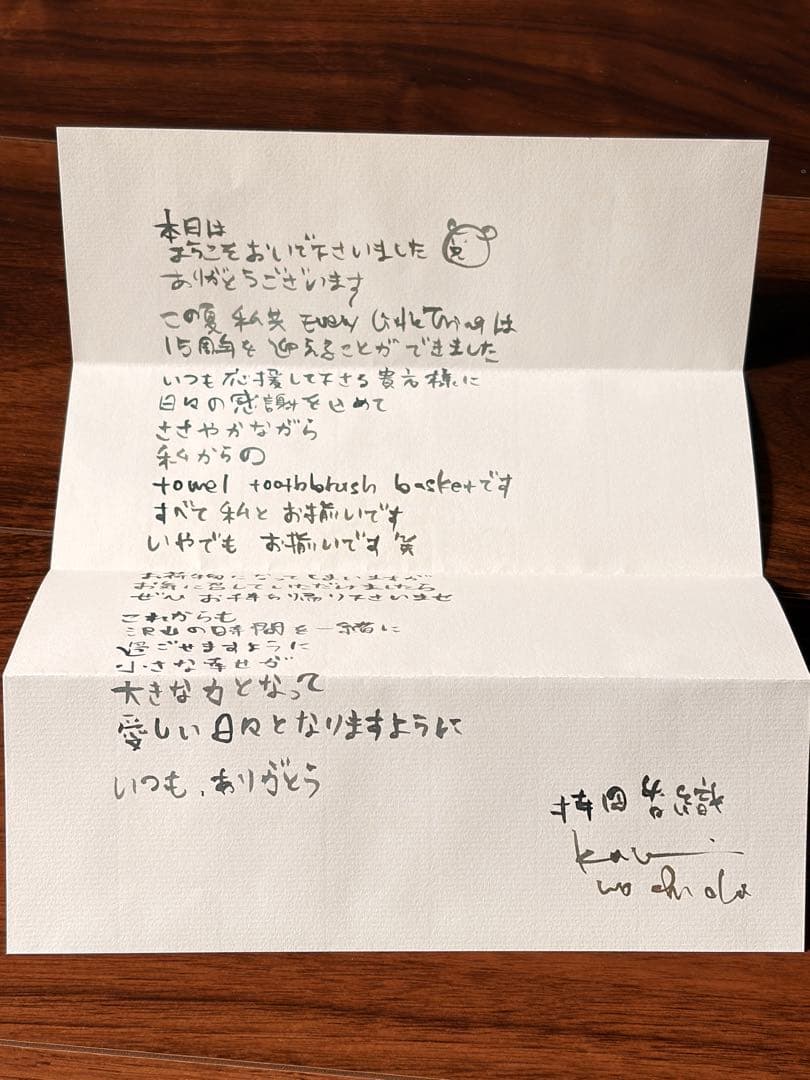 本日は
ようこそおいで下さいました
ありがとうございます
この夏 私共 Every Little Thing は
15周年を迎えることができました
いつも応援して下さる貴方様に
日々の感謝を込めて
ささやかながら
私からの
towel toothbrush basketです
すべて私とお揃いです
いやでも お揃いです 笑
お荷物になってしまいますが
お気に召していただけましたら
ぜひ お持ち帰り下さいませ
これからも
沢山の時間を一緒に
過ごせますように
小さな幸せが
大きな力となって
愛しい日々となりますように
いつも、ありがとう
持田香織
kaori
mochida